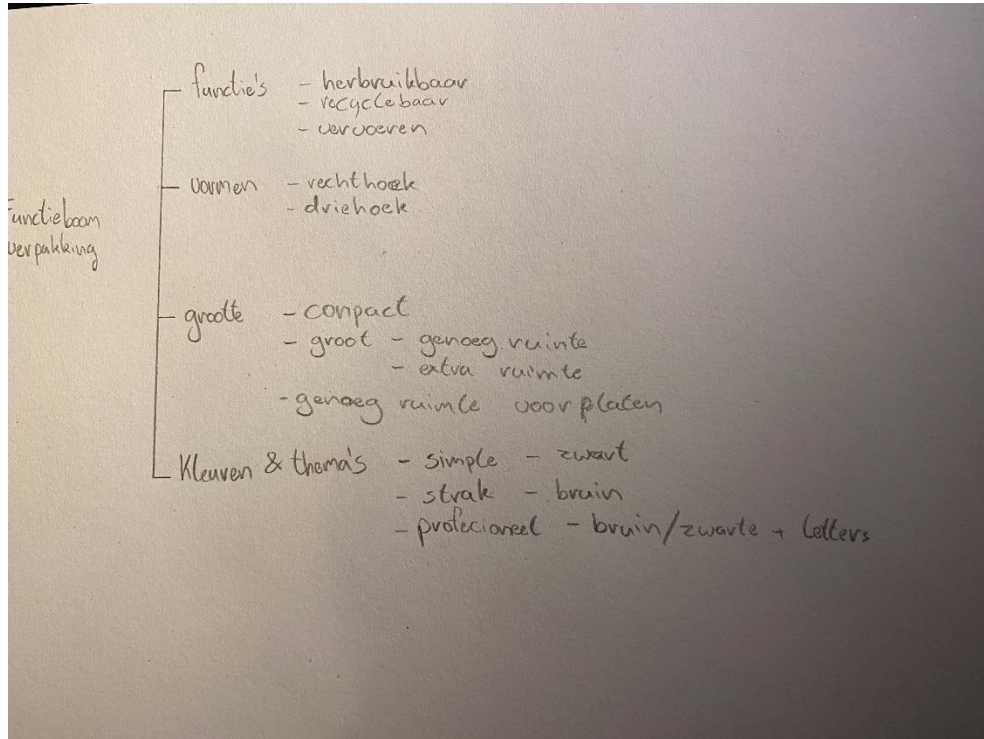 functie's - herbruikbaar
- recyclebaar
- vervoeren
vormen - rechthoek
- driehoek
Functieboom
verpakking
grootte - conpact
- groot - genoeg ruimte
- extra ruimte
- genoeg ruimte voor platen
Kleuren & thema's - simple - zwart
- strak - bruin
- profecioneel - bruin/zwarte + letters